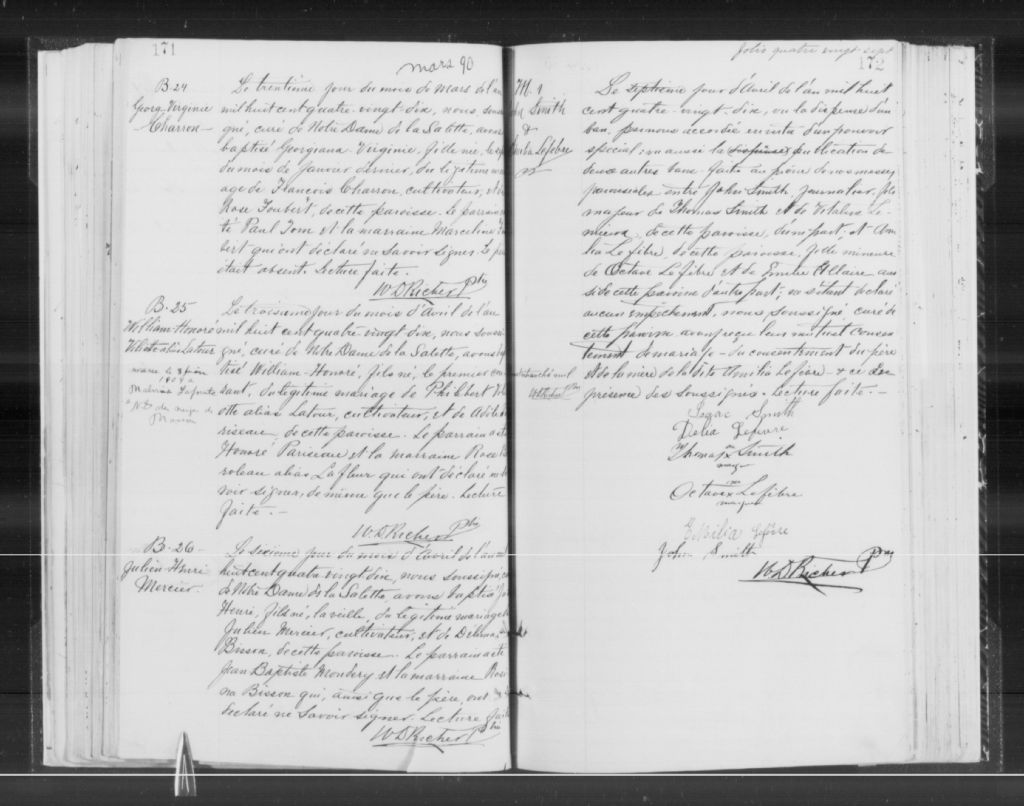 171
mars 90
B-24
Georg. Virginie
Charron
Le trentième jour du mois de mars de l'an
mil huit cent quatre-vingt dix, nous sous
gné, curé de Notre Dame de la Salette, avons
baptisé Georgiana Virginie, fille née, le
du mois de Janvier dernier, du légitime mari
age de François Charron, cultivateur, et de
Rose Joubert, de cette paroisse. Le parrain
té Paul Jom et la marraine Marceline
bert qui ont déclaré ne savoir signer. Le pè
était absent. Lecture faite.
W.D. Richer Ptre
B-25
William-Honoré
alias Latour
marié le
Le troisième jour du mois d'Avril de l'an
mil huit cent quatre-vingt dix, nous souss
gné, curé de Notre Dame de la Salette, avons
tisé William-Honoré, fils né, le premier cou
rant, du légitime mariage de Philibert
otte alias Latour, cultivateur, et de
riseau, de cette paroisse. Le parrain a été
Honoré Pariseau et la marraine Rose
roleau alias Lafleur qui ont déclaré ne
voir signer, de même que le père. Lecture
faite.-
W.D. Richer Ptre
B-26
Julien-Henri
Mercier.
Le sixième jour du mois d'Avril de l'an mil
huit cent quatre vingt dix, nous soussigné, c
de Notre Dame de la Salette, avons baptisé
Henri, fils né, la veille, du légitime mariage
Julien Mercier, cultivateur, et de Delima
Bisson, de cette paroisse. Le parrain a été
Jean Baptiste Mondery et la marraine Rosi
na Bisson qui, ainsi que le père, ont
déclaré ne savoir signer. Lecture faite
W.D. Richer Ptre
folio quatre vingt sept
172
M. 1
Smith
&
Lefebre
Le septième jour d'Avril de l'an mil huit
cent quatre-vingt-dix, vu la dispense d'un
ban, par nous accordée en vertu d'un pouvoir
spécial; vu aussi la publication de
deux autres bans faite au prône de nos messes
paroissiales entre John Smith, journalier, fils
majeur de Thomas Smith et de Vitaline Le-
mieux, de cette paroisse, d'une part, et Amé
lia Lefebre, de cette paroisse, fille mineure
de Octave Lefebre et de Emélie Allaire aus
si de cette paroisse d'autre part; ne s'étant déclaré
aucun empêchement, nous soussigné, curé de
cette paroisse avons reçu leur mutuel consen
tement de mariage - du consentement du père
et de la mère de la dite Amélia Lefebre - & ce en
présence des soussignés. Lecture faite.-
Isaac Smith
Delia Lefevre
Thomas x Smith
marque
Octave x Lefebre
marque
Emilia Lefevre
John Smith
W.D. Richer Ptre